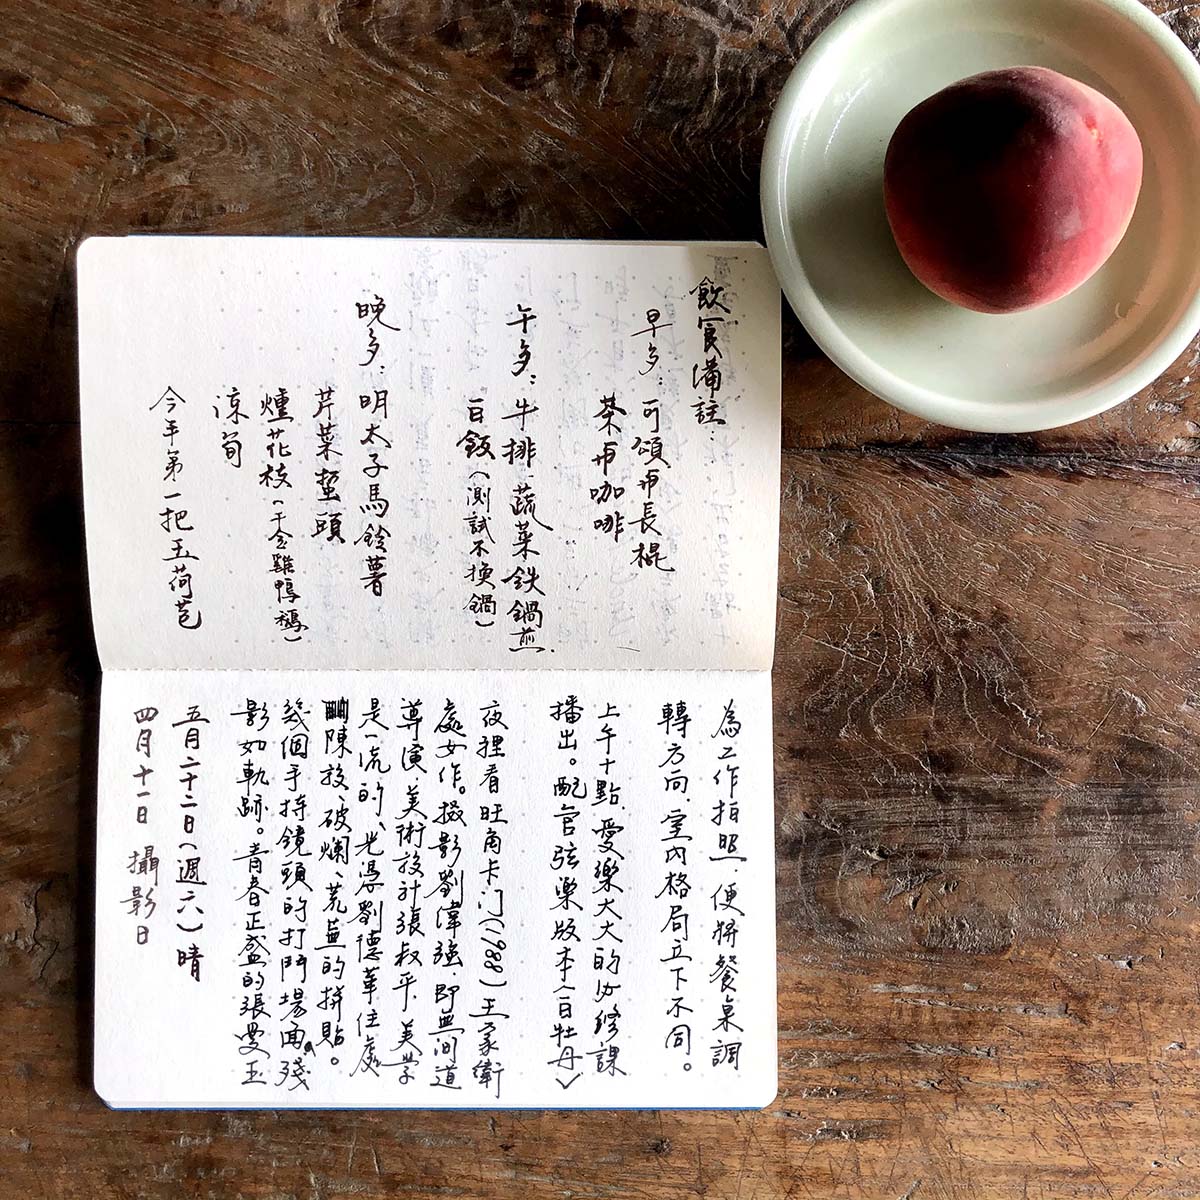 飲食備註：
早多：可頌甪長棍
茶甪咖啡
午多：牛排、蔬菜鉄鍋煎.
白飯（測試不換鍋）
晚多：明太子馬鈴薯
芹菜蜇頭
燻花枝（千金雞鴨鵝）
涼筍
今年第一把玉荷苞
為工作拍照，便將餐桌調
轉方向，室內格局立下不同。
上午十點，愛樂大大的必修課
播出。配官弦樂版本《白牡丹》
夜裡看旺角卡门（1988）王家衛
處女作。攝影劉偉強，即無间道
導演，美術設計張叔平，美學
是一流的，光憑劉德華住處
陳設、破爛、荒蕪的拼貼。
幾個手持鏡頭的打鬥場面，殘
影如軌跡。青春正盛的張曼玉
五月二十二日（週六）晴
四月十一日 攝影日